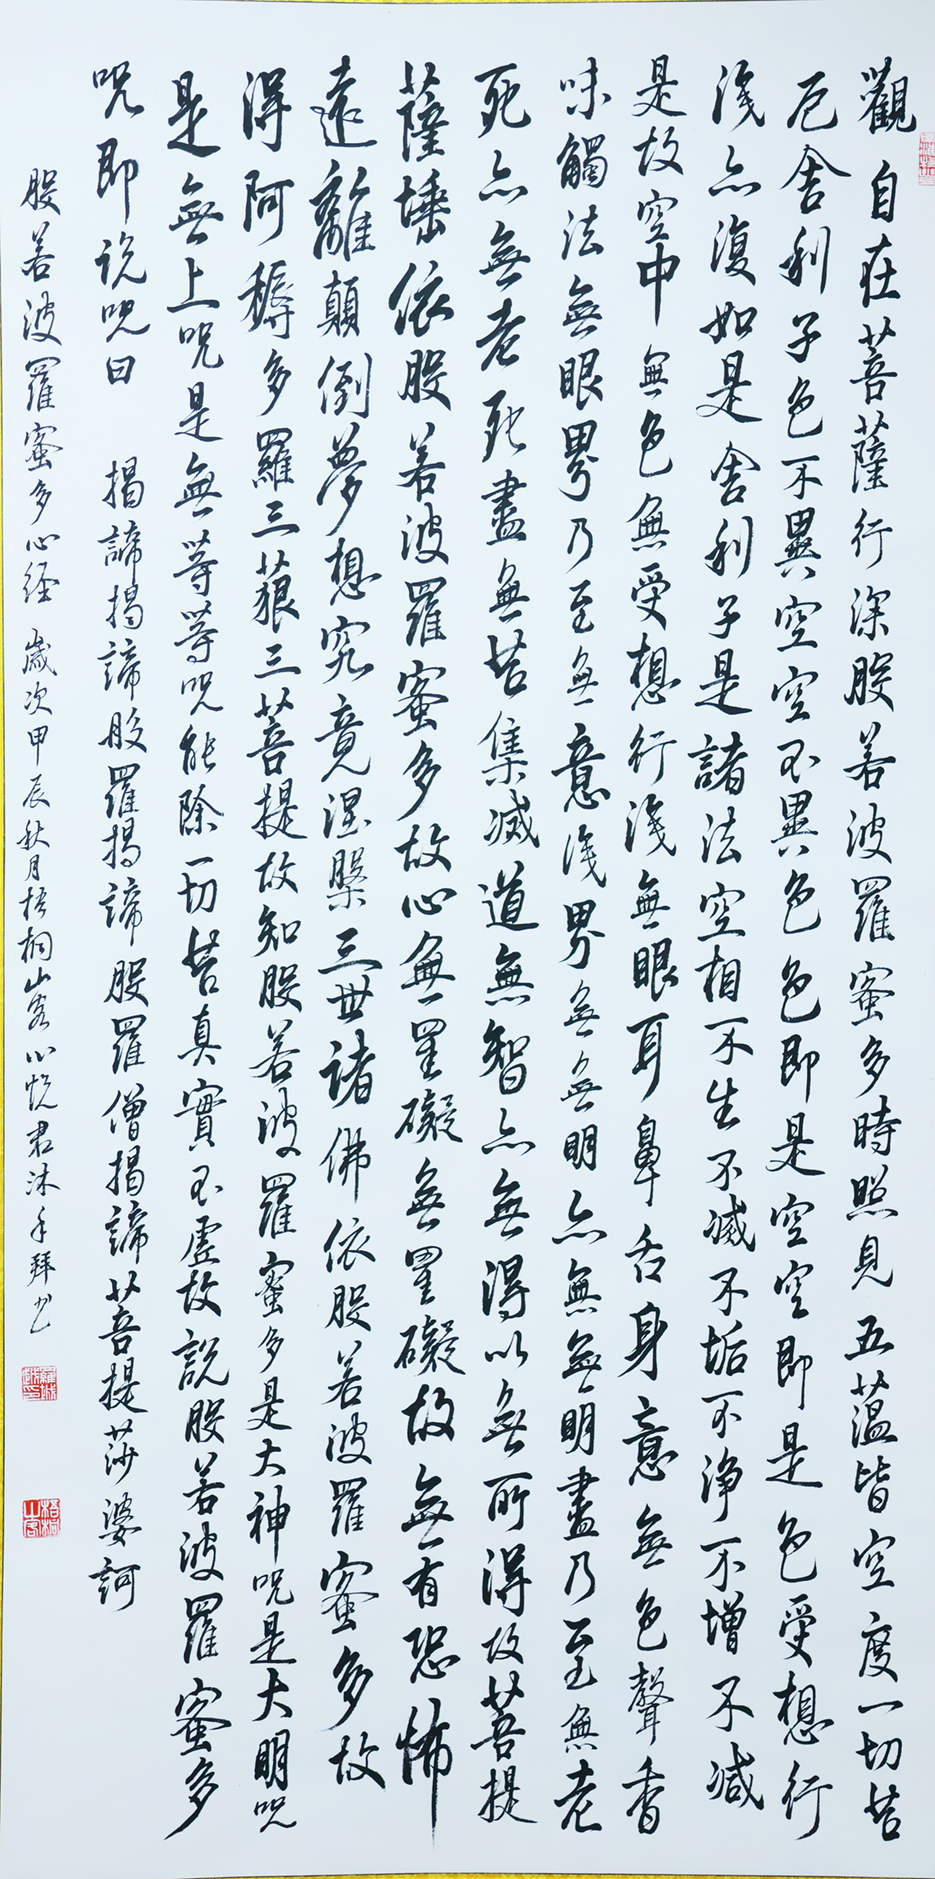 觀自在菩薩行深般若波羅蜜多時照見五蘊皆空度一切苦
厄舍利子色不異空空不異色色即是空空即是色受想行
識亦復如是舍利子是諸法空相不生不滅不垢不淨不增不減
是故空中無色無受想行識無眼耳鼻舌身意無色聲香
味觸法無眼界乃至無意識界無無明亦無無明盡乃至無老
死亦無老死盡無苦集滅道無智亦無得以無所得故菩提
薩埵依般若波羅蜜多故心無罣礙無罣礙故無有恐怖
遠離顛倒夢想究竟涅槃三世諸佛依般若波羅蜜多故
得阿耨多羅三藐三菩提故知般若波羅蜜多是大神咒是大明咒
是無上咒是無等等咒能除一切苦真實不虛故說般若波羅蜜多
咒即說咒曰 揭諦揭諦般羅揭諦般羅僧揭諦菩提莎婆訶
般若波羅蜜多心經 歲次甲辰秋月梧桐山客心悅君沐手拜书
梧桐山客